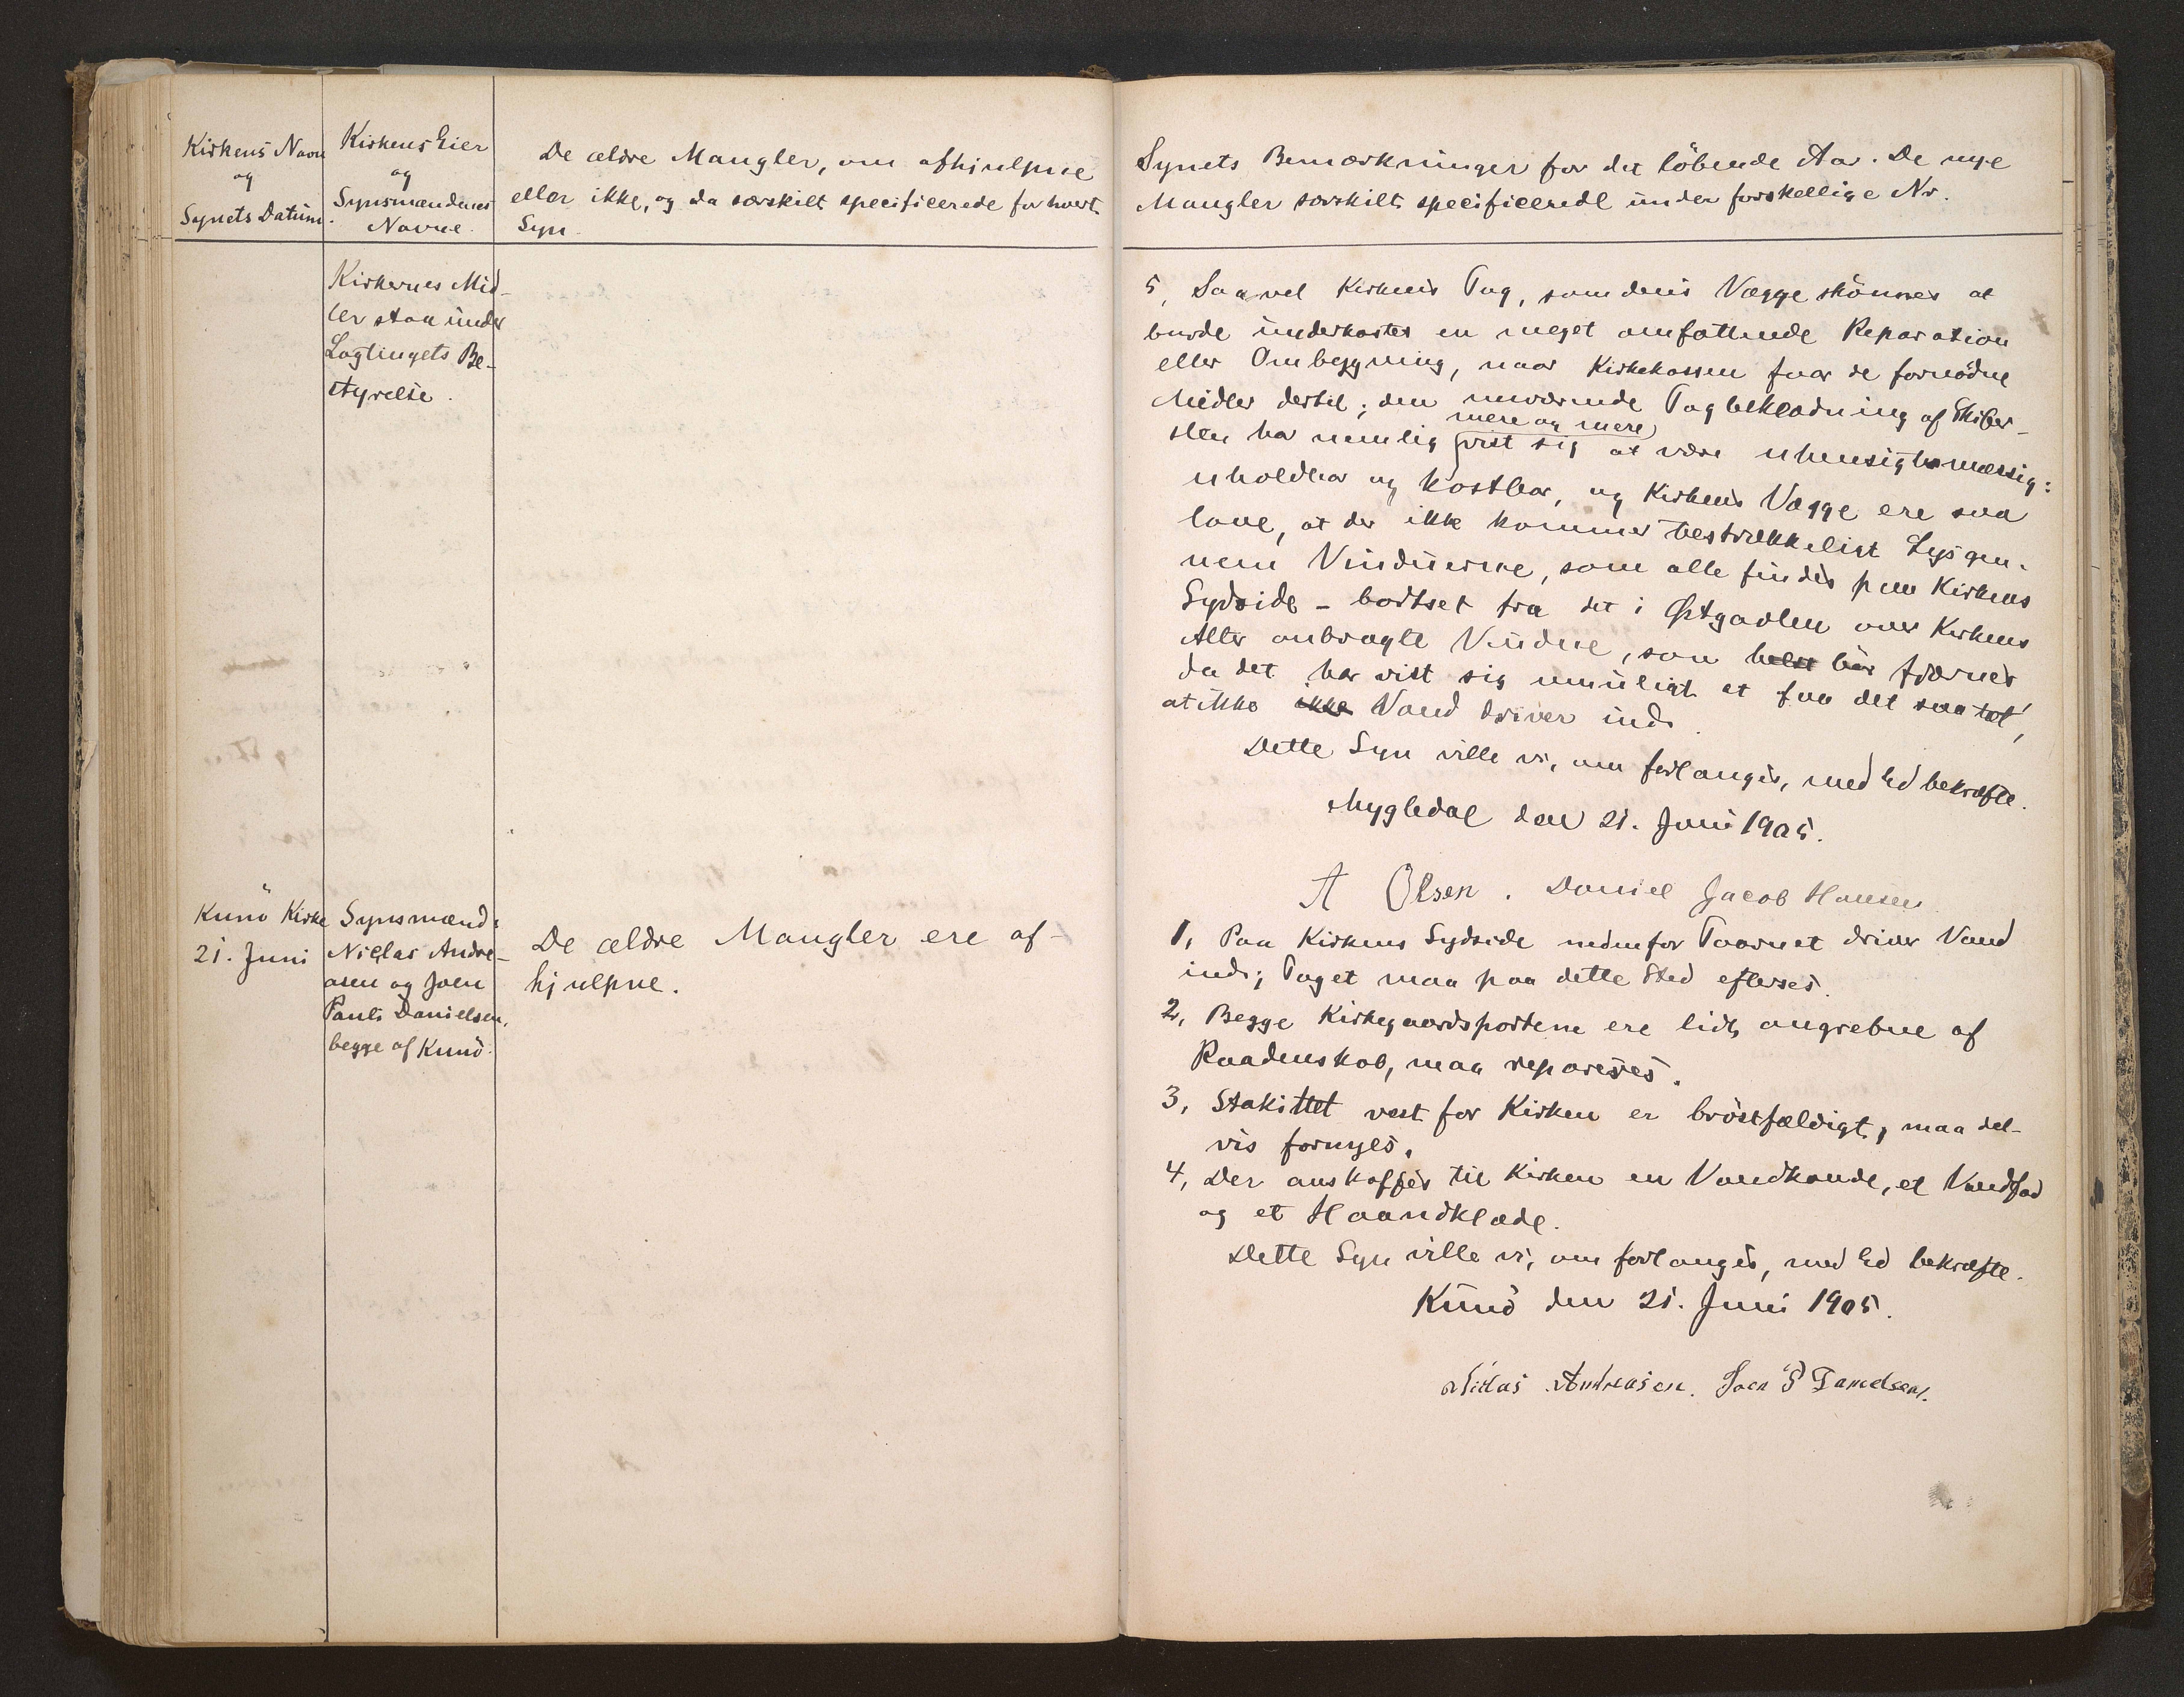 Kirkens Navn
og
Synets Datum.
Kirkens Eier
og
Synsmændenes
Navne.
De ældre Mangler, om afhjulpne
eller ikke, og da særskilt specificerede for hvert
Syn.
Kirkernes Mid-
ler staa under
Lagtingets Be-
styrelse.
Kunö Kirke
21. Juni
Synsmænd:
Niclas Andre-
asen og Joen
Pauli Danielsen,
begge af Kunö.
De ældre Mangler ere af-
hjulpne.
Synets Bemærkninger for det löbende Aar. De nye
Mangler særskilt specificerede under forskellige Nr.
5, Saavel Kirkens Tag, som dens Vægge skönnes at
burde underkastes en meget omfattende Reparation
eller Ombygning, naar Kirkekassen faar de fornödne
Midler dertil; den nuværende Tagbeklædning af Skifer-
mere og mere
sten har nemlig vist sig at være uhensigtsmæssig:
uholdbar og kostbar, og Kirkens Vægge ere saa
lave, at der ikke kommer testrækkeligt Lys gen-
nem Vinduerne, som alle findes paa Kirkens
Sydside - bortset fra det i Østgavlen over Kirkens
Alter anbragte Vindue, som helst bör fjærnes
da det har vist sig umuligt at faa det saa tæt,
at ikke ikke Vand driver ind.
Dette Syn ville vi, om forlanges, med Ed bekræfte.
Mygledal den 21. Juni 1905.
A Olsen. Daniel Jacob Hansen
1, Paa Kirkens Sydside nedenfor Taarnet driver Vand
ind; Taget maa paa dette Sted efterses.
2, Begge Kirkegaardsportene ere lidt angrebne af
Raadenskab, maa repareres.
3, Stakittet vest for Kirken er bröstfældigt, maa del-
vis fornyes.
4, Der anskaffes til Kirken en Vandkande, et Vandfad
og et Haandklæde.
Dette Syn ville vi, om forlanges, med Ed bekræfte.
Kunö den 21. Juni 1905.
Niclas Andreasen. Joen P Danielsen.